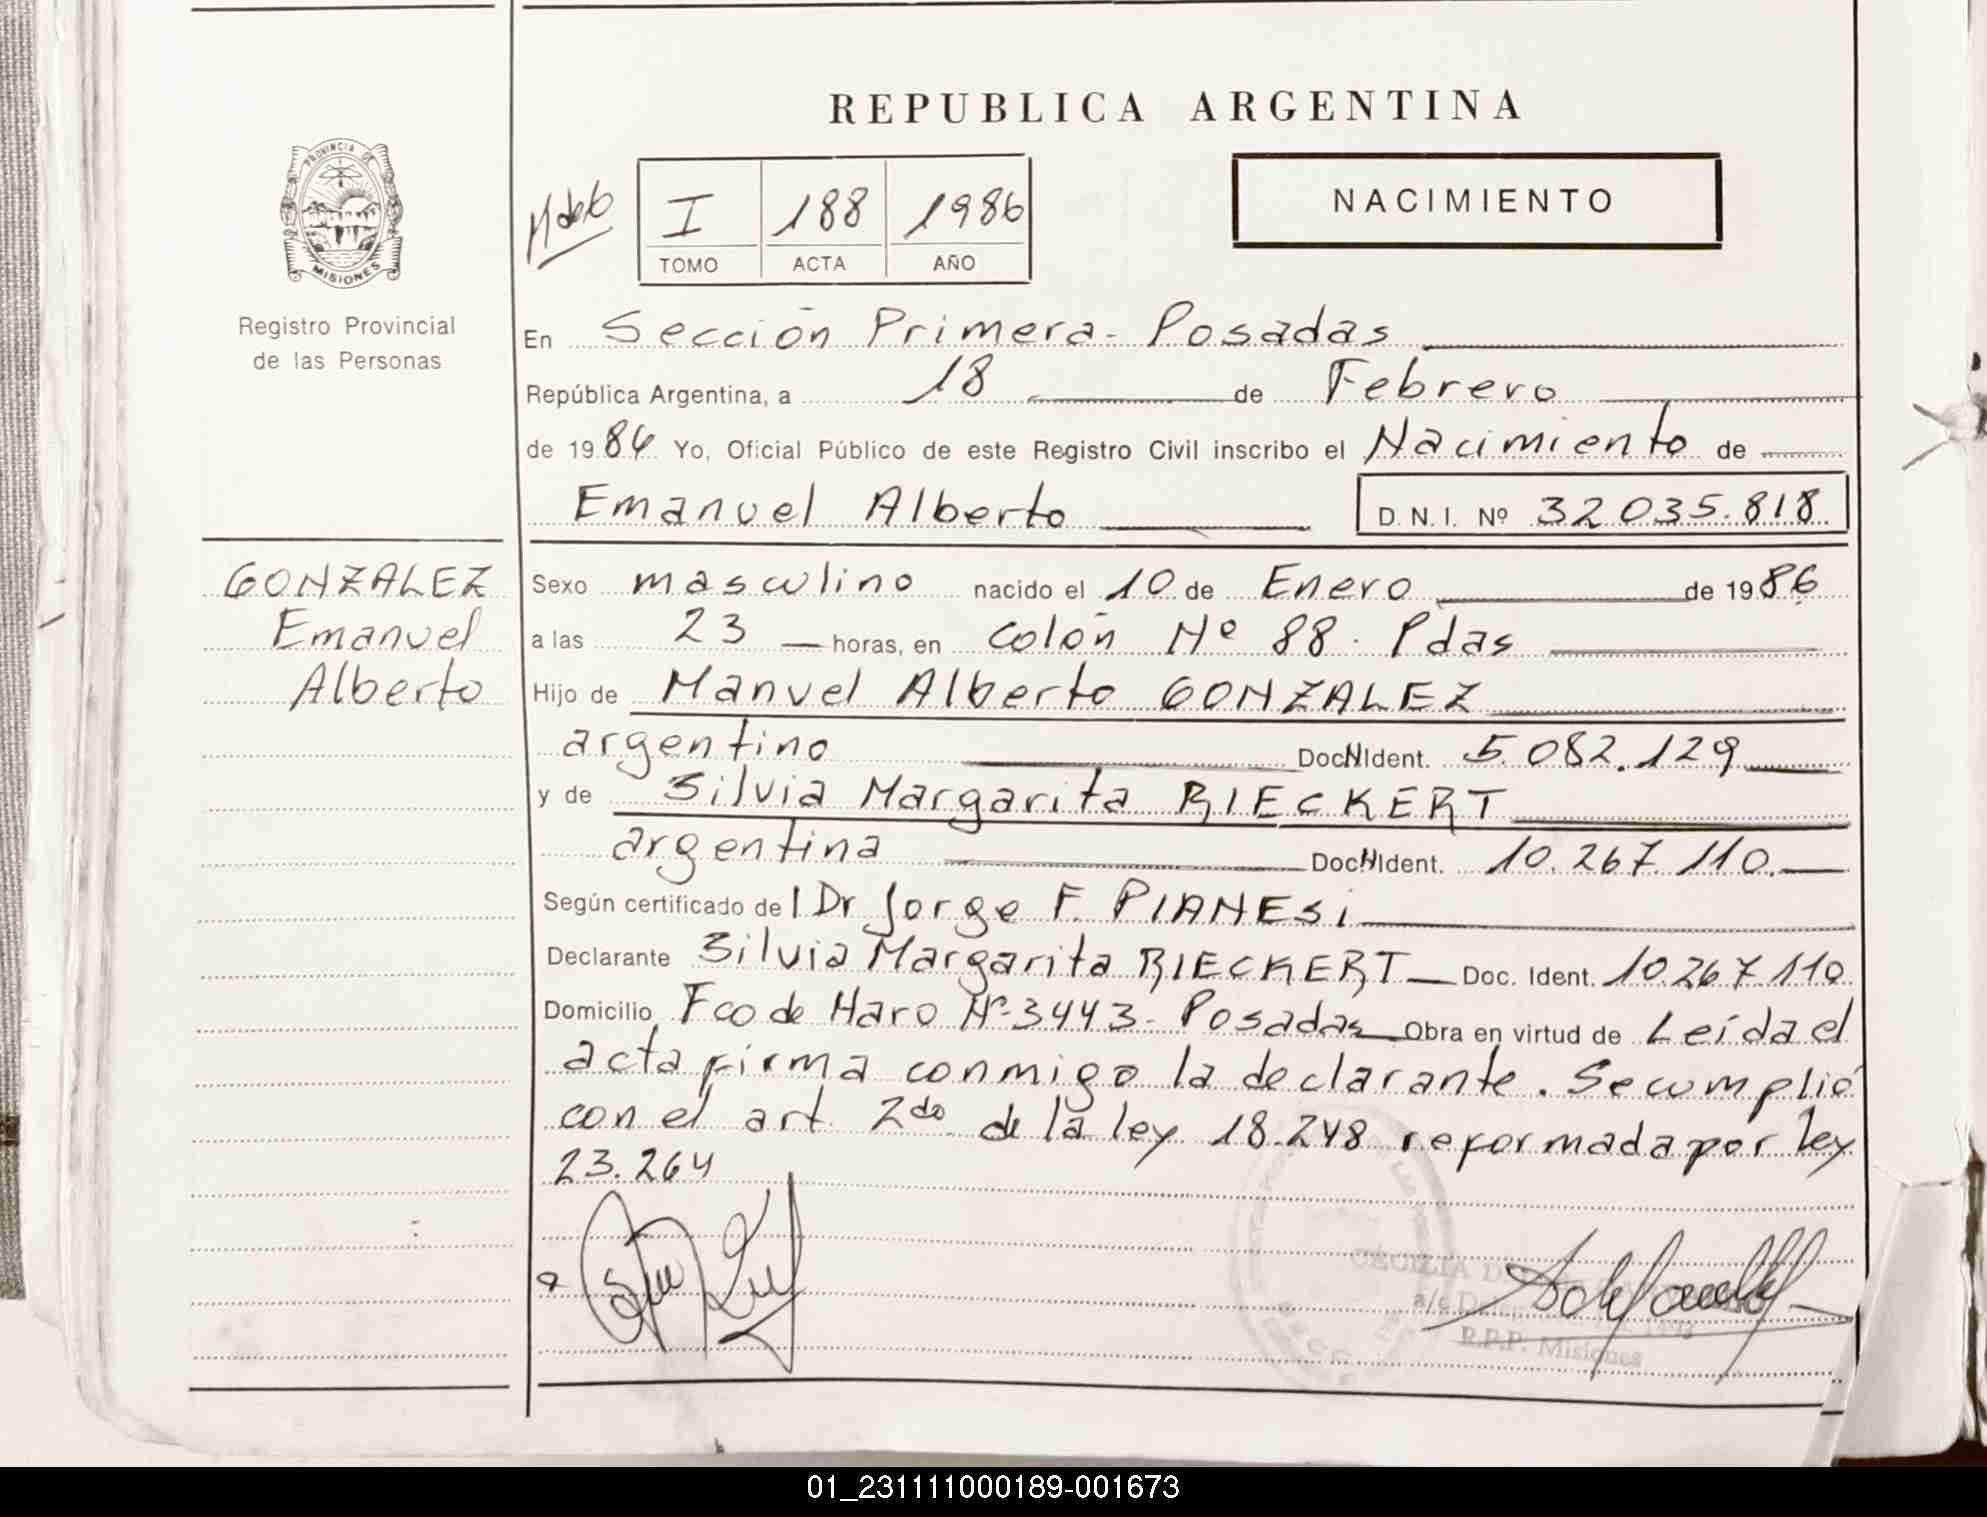 REPUBLICA ARGENTINA
PROVINCIA DE
MISIONES
Registro Provincial
de las Personas
I 188 1986
TOMO ACTA AÑO
NACIMIENTO
En Sección Primera - Posadas
República Argentina, a 18 de Febrero
de 1986 Yo, Oficial Público de este Registro Civil inscribo el Nacimiento de
Emanuel Alberto D.N.I. Nº 32.035.818
GONZALEZ
Emanuel
Alberto
Sexo masculino nacido el 10 de Enero de 1986
a las 23 horas, en Colón Nº 88. Pdas
Hijo de Manuel Alberto GONZALEZ
argentino Doc.N.Ident. 5.082.129
y de Silvia Margarita RIECKERT
argentina Doc.N.Ident. 10.267.110.
Según certificado del Dr Jorge F. PIANESi
Declarante Silvia Margarita RIECKERT Doc. Ident. 10.267.110
Domicilio Fco de Haro Nº 3443 - Posadas Obra en virtud de Leída el
acta firma conmigo la declarante. Se cumplió
con el art. 2do de la ley 18.248 reformada por ley
23.264
CECILIA
R.P.P. Misiones
01_231111000189-001673